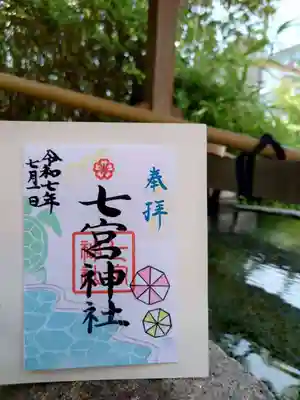 奉拝
七宮神社
令和七年
七月十一日